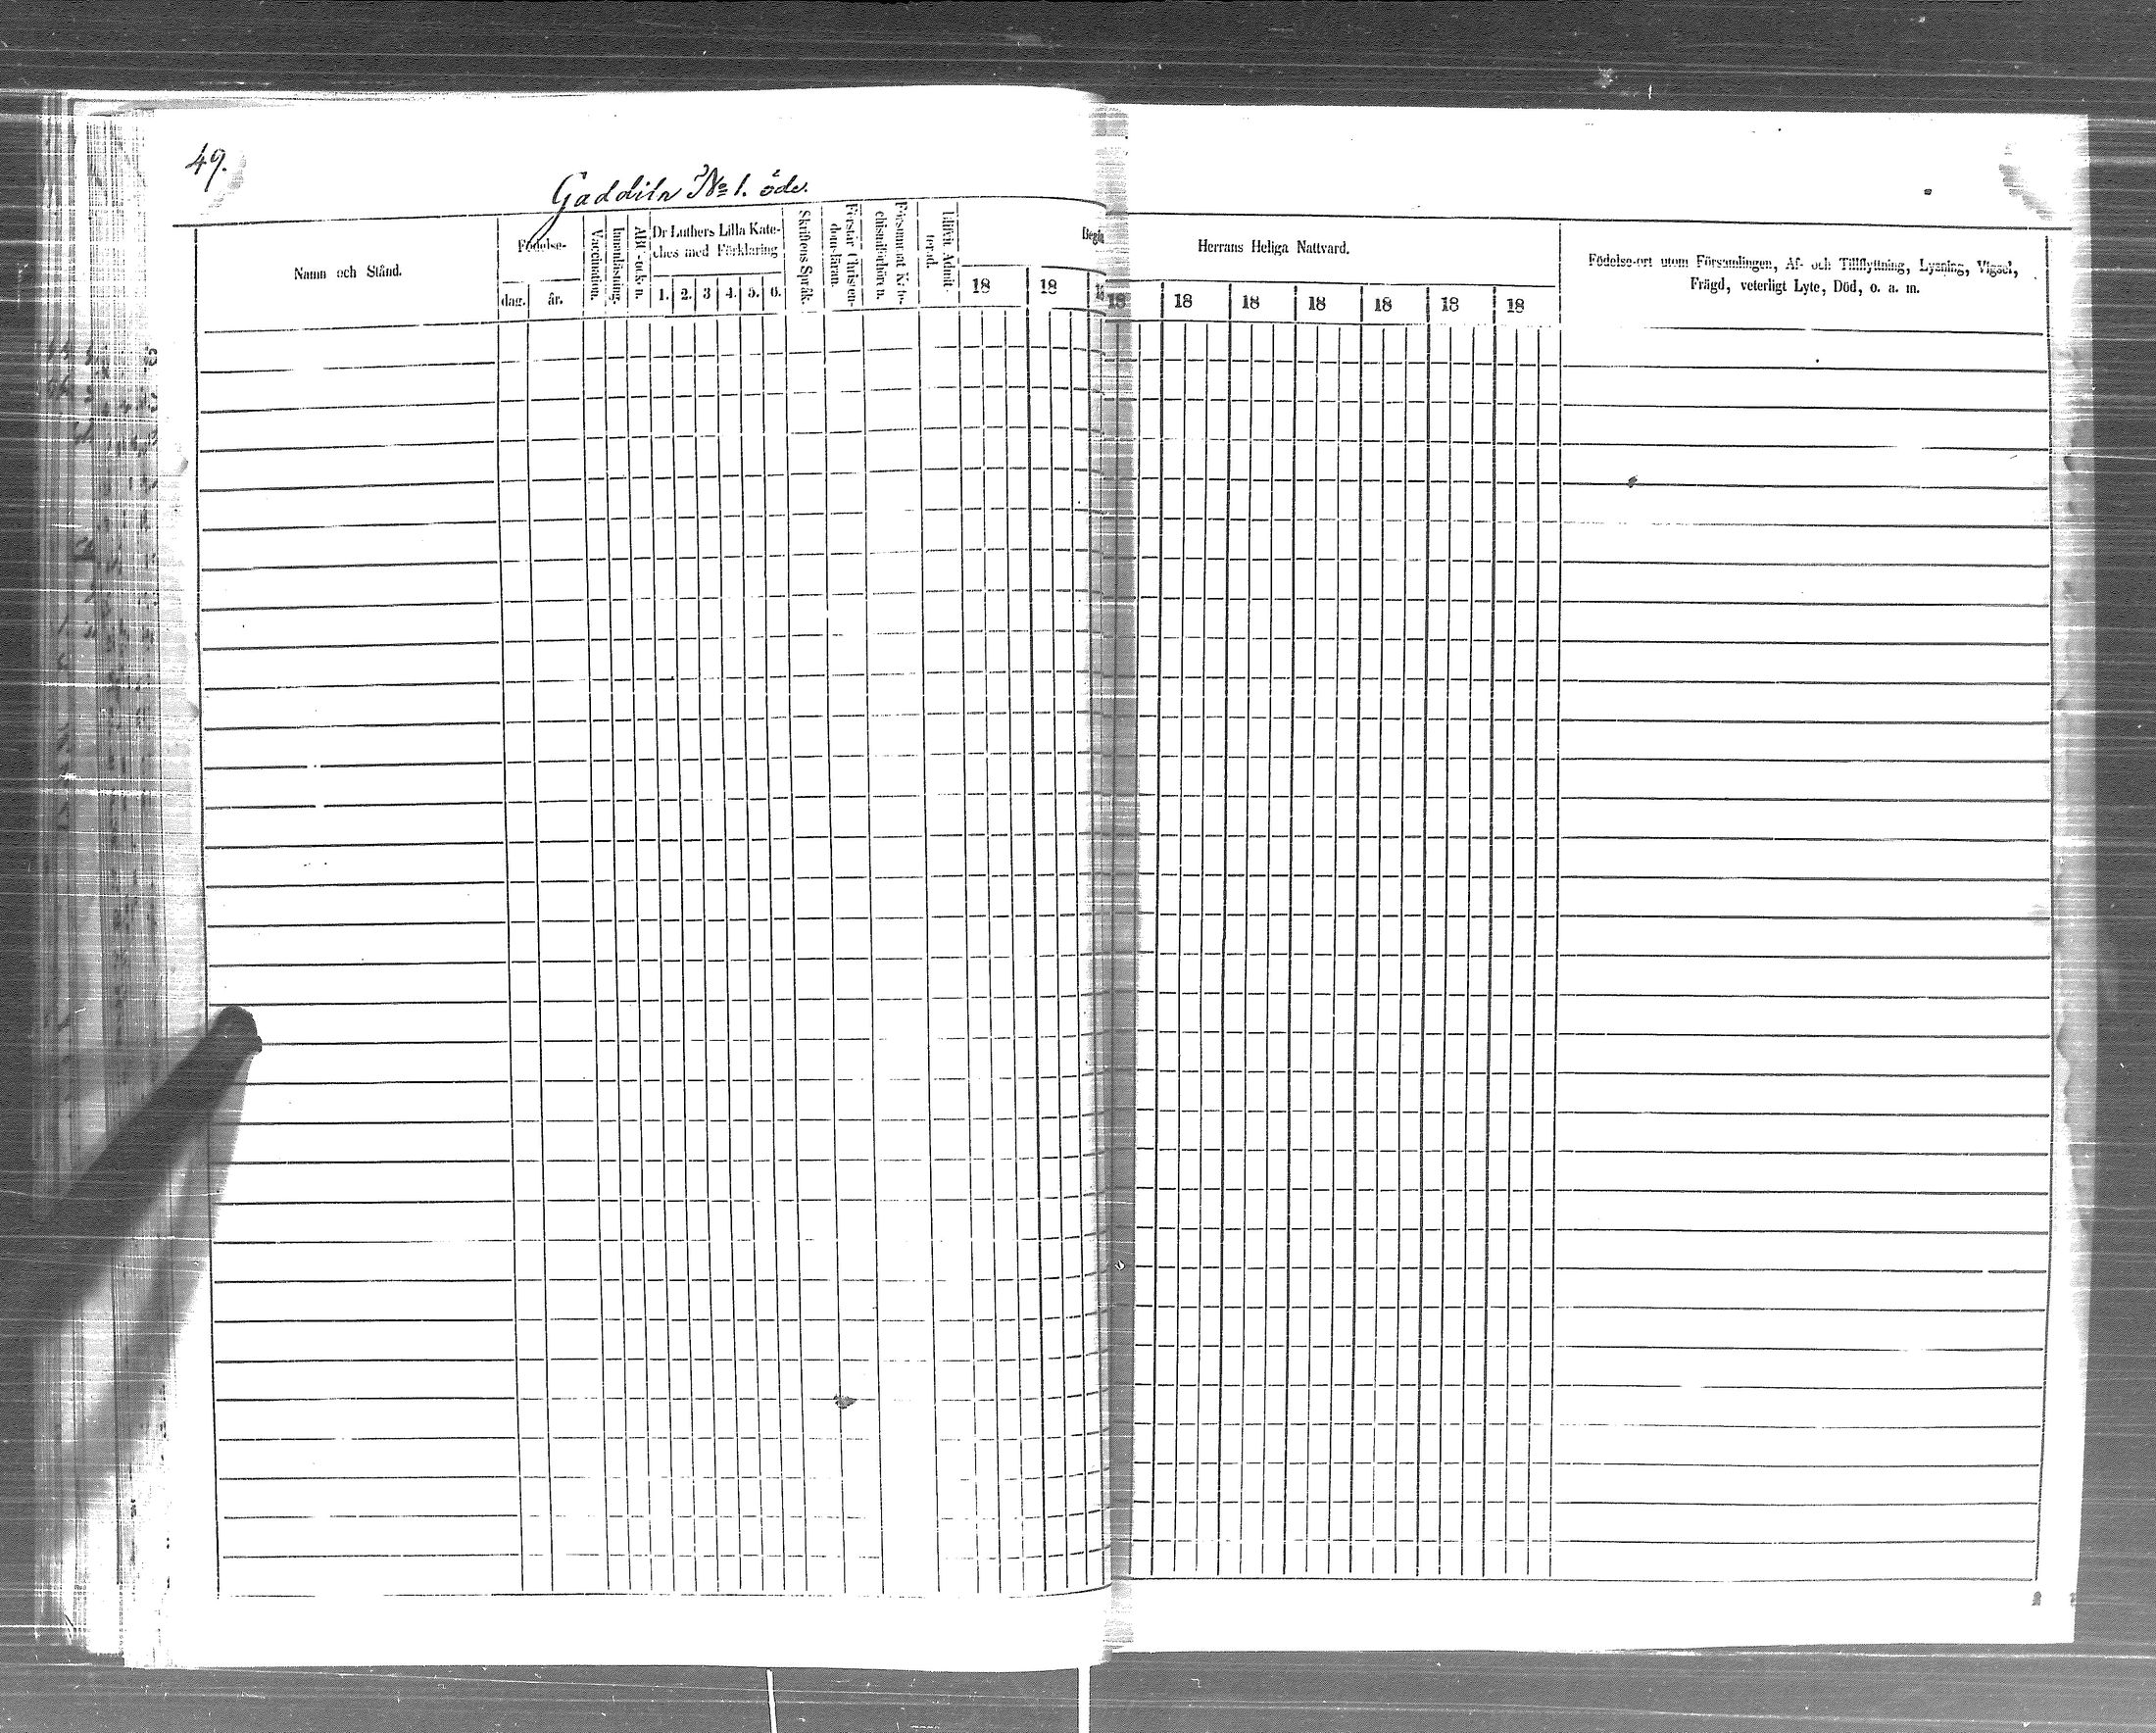 49.
Gaddila No 1. öde.
Namn och Stånd.
Födelse-
dag. år.
Vaccination.
Innanläsning.
ABC-boken.
Dr Luthers Lilla Kate-
ches med Förklaring
1. 2. 3 4. 5. 6.
Skriftens Språk.
Förstår Christen-
domsläran.
Försummat Kate-
chismiförhören.
Blifvit Admit-
terad.
Begå
Herrans Heliga Nattvard.
18 18 18 18 18 18 18 18 18
Födelse-ort utom Församlingen, Af- och Tillflyttning, Lysning, Vigsel,
Frägd, veterligt Lyte, Död, o. a. m.